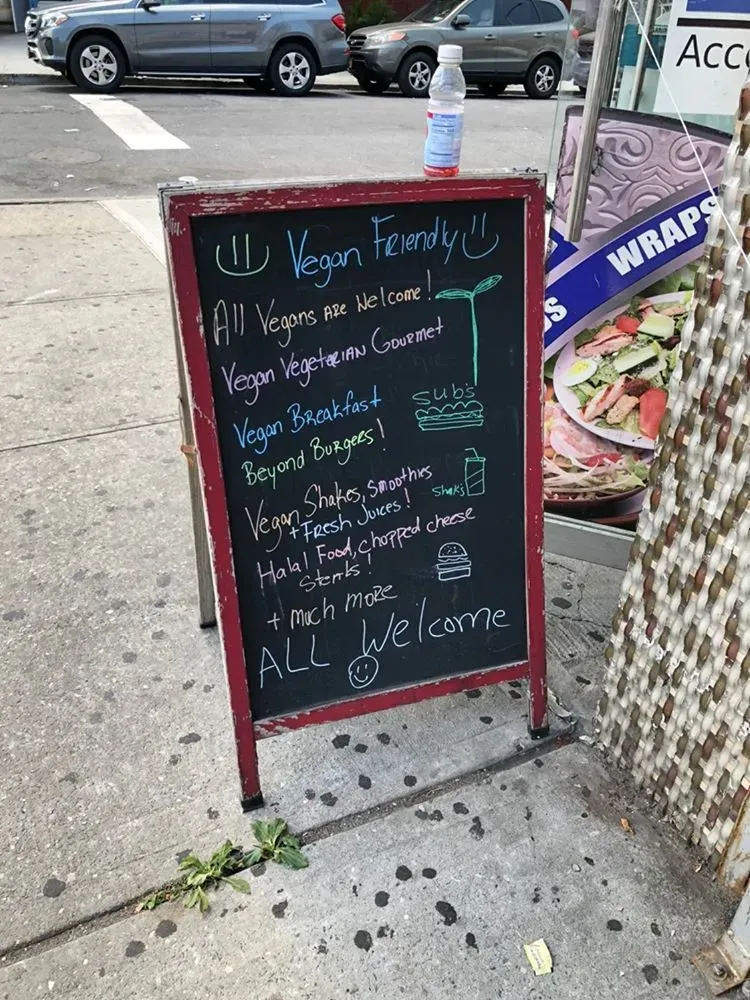 Vegan Friendly
All Vegans ARE Welcome!
Vegan VegetARIAN GOURMET
SUB'S
Vegan BReakfast
Beyond BuRgeRs!
Vegan Shakes, Smoothies
+ FResh Juices!
Halal Food, chopped cheese
+ Much MORe
ALL Welcome
WRAPS